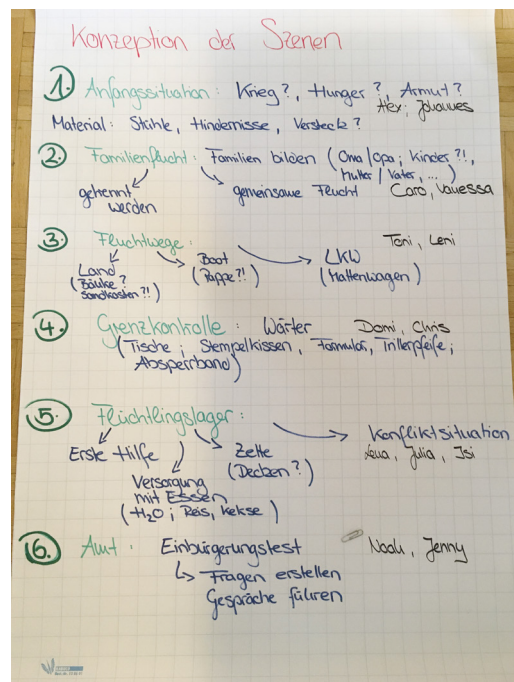 Konzeption der Szenen
1. Anfangssituation: Krieg?, Hunger?, Armut?
Alex, Johannes
Material: Stühle, Hindernisse, Versteck?
2. Familienflucht: Familien bilden (Oma/Opa; Kinder?!,
Mutter/Vater, ...)
getrennt werden
gemeinsame Flucht
Caro, Vanessa
3. Fluchtwege:
Toni, Leni
Land
(Bänke?
Sandkasten?!)
Boot
(Pappe?!)
LKW
(Mattenwagen)
4. Grenzkontrolle: Wärter Domi, Chris
(Tische; Stempelkissen, Formular, Trillerpfeife;
Absperrband)
5. Flüchtlingslager:
Erste Hilfe
Versorgung
mit Essen
(H2O; Reis, Kekse)
Zelte
(Decken?)
Konfliktsituation
Julia, Isi
6. Amt: Einbürgerungstest Noah, Jenny
↳ Fragen erstellen
Gespräche führen